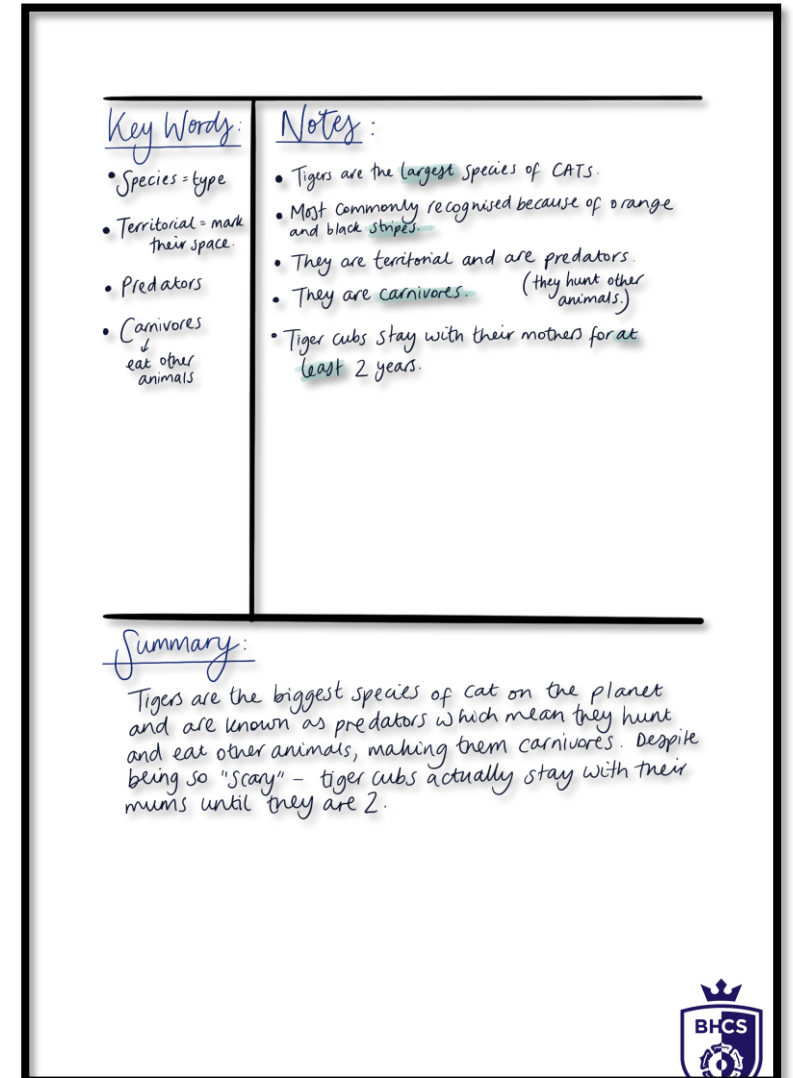 Key Words:
• Species = type
• Territorial = mark
their space.
• Predators
• Carnivores
↓
eat other
animals
Notes:
• Tigers are the largest species of CATS.
• Most commonly recognised because of orange
and black stripes.
• They are territorial and are predators.
(they hunt other
animals.)
• They are carnivores.
• Tiger cubs stay with their mothers for at
least 2 years.
Summary:
Tigers are the biggest species of cat on the planet
and are known as predators which mean they hunt
and eat other animals, making them carnivores. Despite
being so "scary" – tiger cubs actually stay with their
mums until they are 2.
BHCS